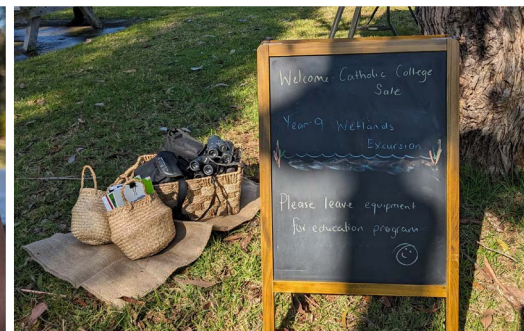 Welcome Catholic College
Sale
Year-9 Wetlands
Excursion
Please leave equipment
for education program